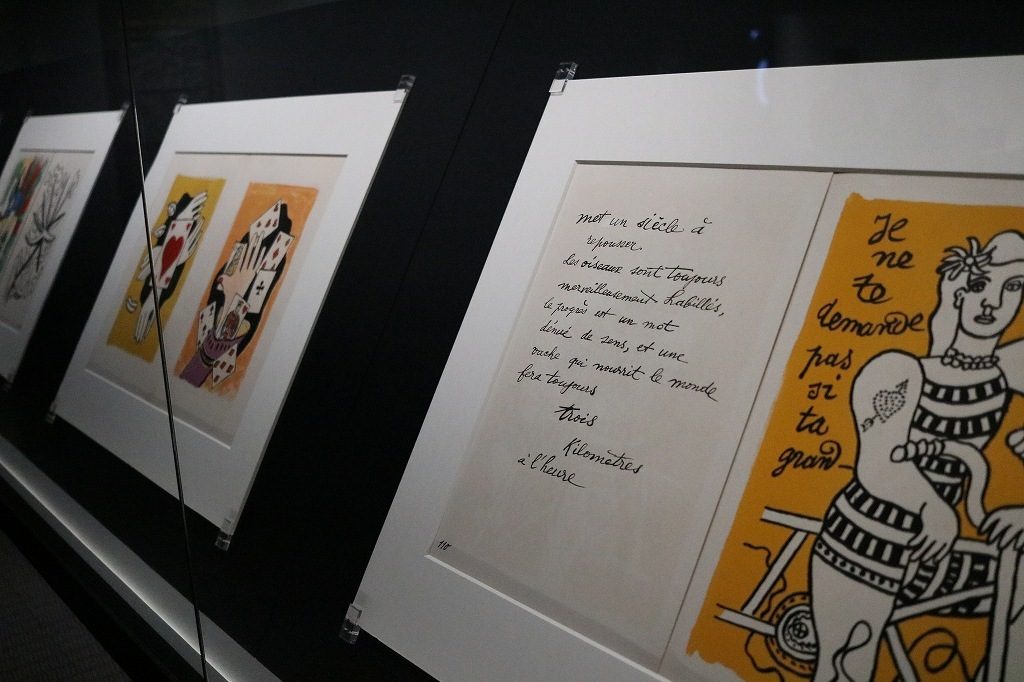 met un siècle à
repousser.
Les oiseaux sont toujours
merveilleusement habillés,
le progrès est un mot
dénué de sens, et une
vache qui nourrit le monde
fera toujours
trois
Kilomètres
à l'heure
110
Je
ne
te
demande
pas
si
ta
grand-